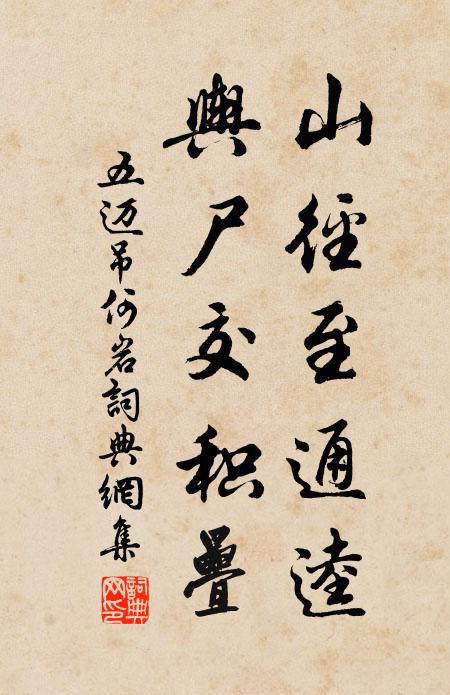 山徑至通逵
輿尸交积疊
五迈吊何岩詞典網集
詞典網印